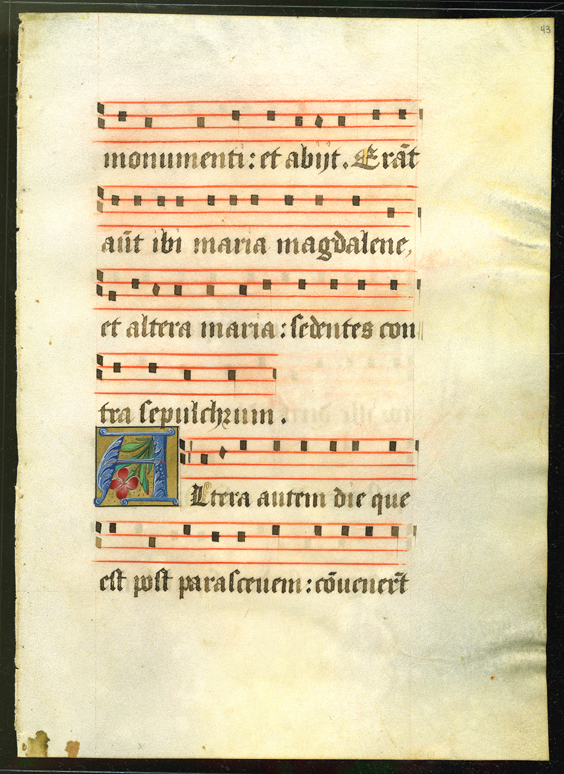 43
monumenti : et abijt . Erāt
aūt ibi maria magdalene,
et altera maria : sedentes con
tra sepulchrum .
ALtera autem die que
est post parasceuem : cōuenerūt